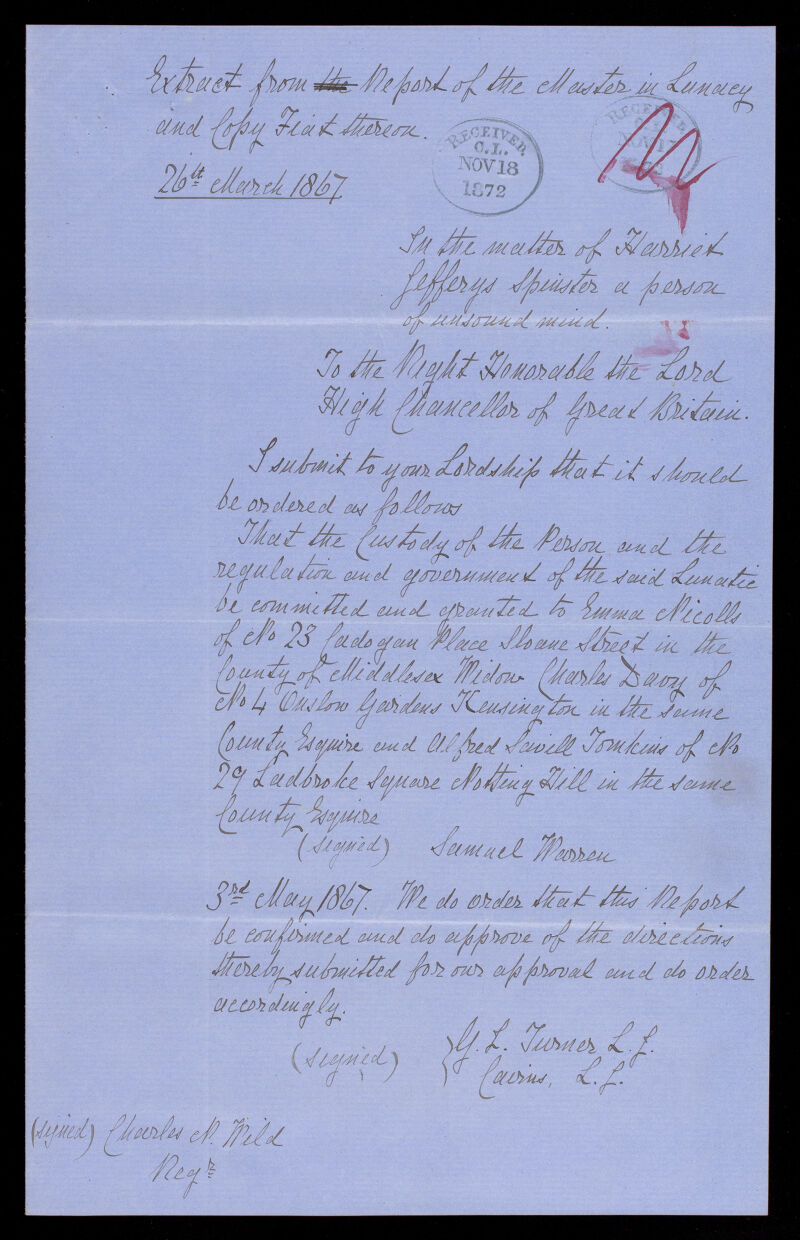 Extract from the Report of the Master in Lunacy
and Copy Fiat thereon.
RECEIVED.
C.L.
NOV 18
1872
RECEIVED.
26th March 1867
In the matter of Harriet
Jefferys Spinster a person
of unsound mind.
To the Right Honorable the Lord
High Chancellor of Great Britain.
I submit to your Lordship that it should
be ordered as follows
That the Custody of the Person and the
regulation and government of the said Lunatic
be committed and granted to Emma Nicolls
of No 23 Cadogan Place Sloane Street in the
County of Middlesex Widow Charles Davy of
No 4 Onslow Gardens Kensington in the same
County Esquire and Alfred Savill Tomkins of No
29 Ladbroke Square Notting Hill in the same
County Esquire
(signed) Samuel Warren
3rd May 1867. We do order that this Report
be confirmed and do approve of the directions
thereby submitted for our approval and do order
accordingly.
(signed) G. L. Turner L.J.
Cairns, L.J.
(signed) Charles N. Wild
Regr